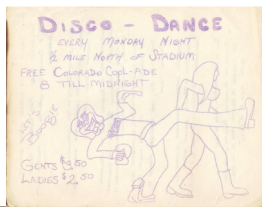 DISCO - DANCE
EVERY MONDAY NIGHT
2 MILE NORTH OF STADIUM
FREE COLORADO COOL-ADE
8 TILL MIDNIGHT
LET'S BOOGIE
GENTS $3.50
LADIES $2.50